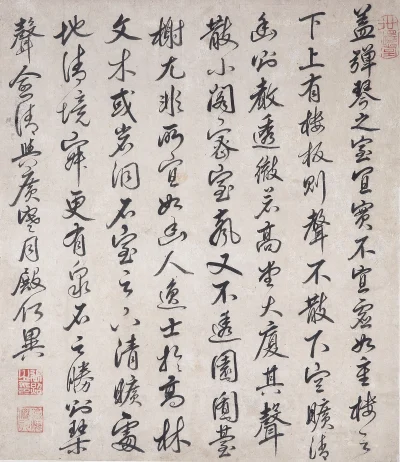 蓋彈琴之室宜實不宜虛如重樓之
下上有樓板則聲不散下空曠清
幽則透徹若高堂大廈其聲
散小閣密室氣又不透園囿臺
榭尤非所宜如幽人逸士於高林
文木或岩洞石室之下清曠處
地清境寂更有泉石之勝則琴
聲愈清與廣寒月殿何異